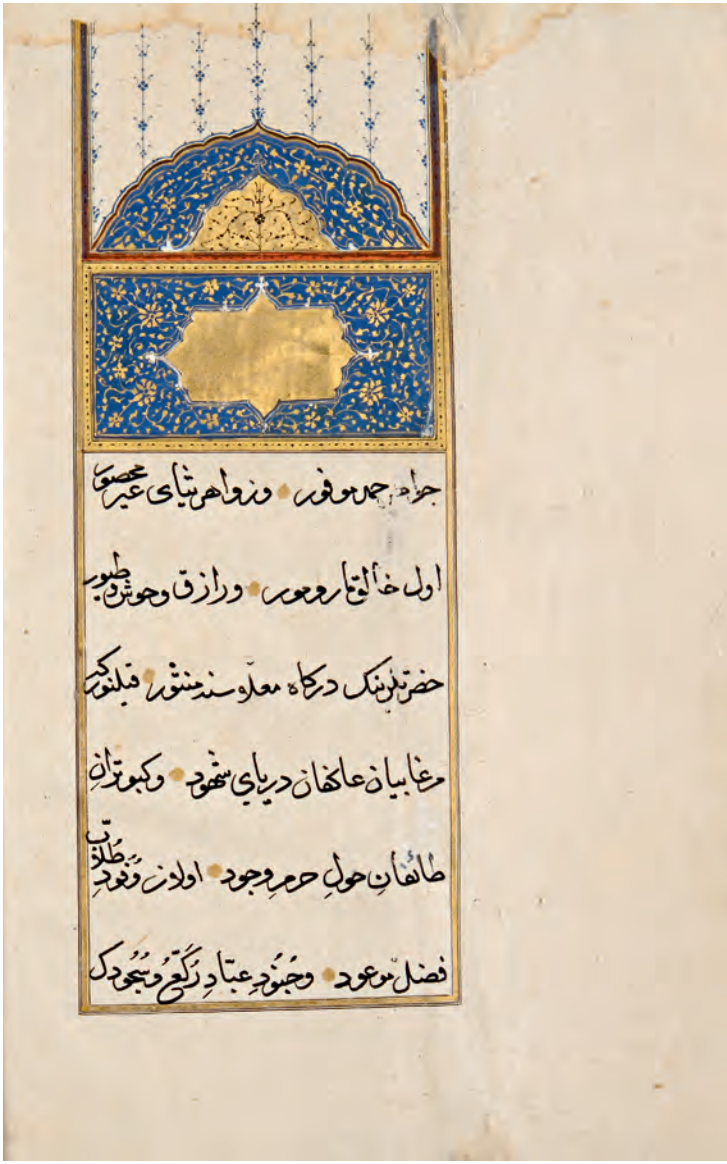 جواهر حمد موفور وزواهر ثنای غیر محصور
اول خالق مار ومور ورازق وحوش وطیور
حضرتلرینک درکاه معلاسنه منثور قیلنور که
مرغابیان عاکفان دریای شهود وکبوترانِ
طائفانِ حولِ حرمِ وجود اولان وُفودِ طُلّابِ
فضل موعود وجُنودِ عبّادِ رُکَّع وسُجودک